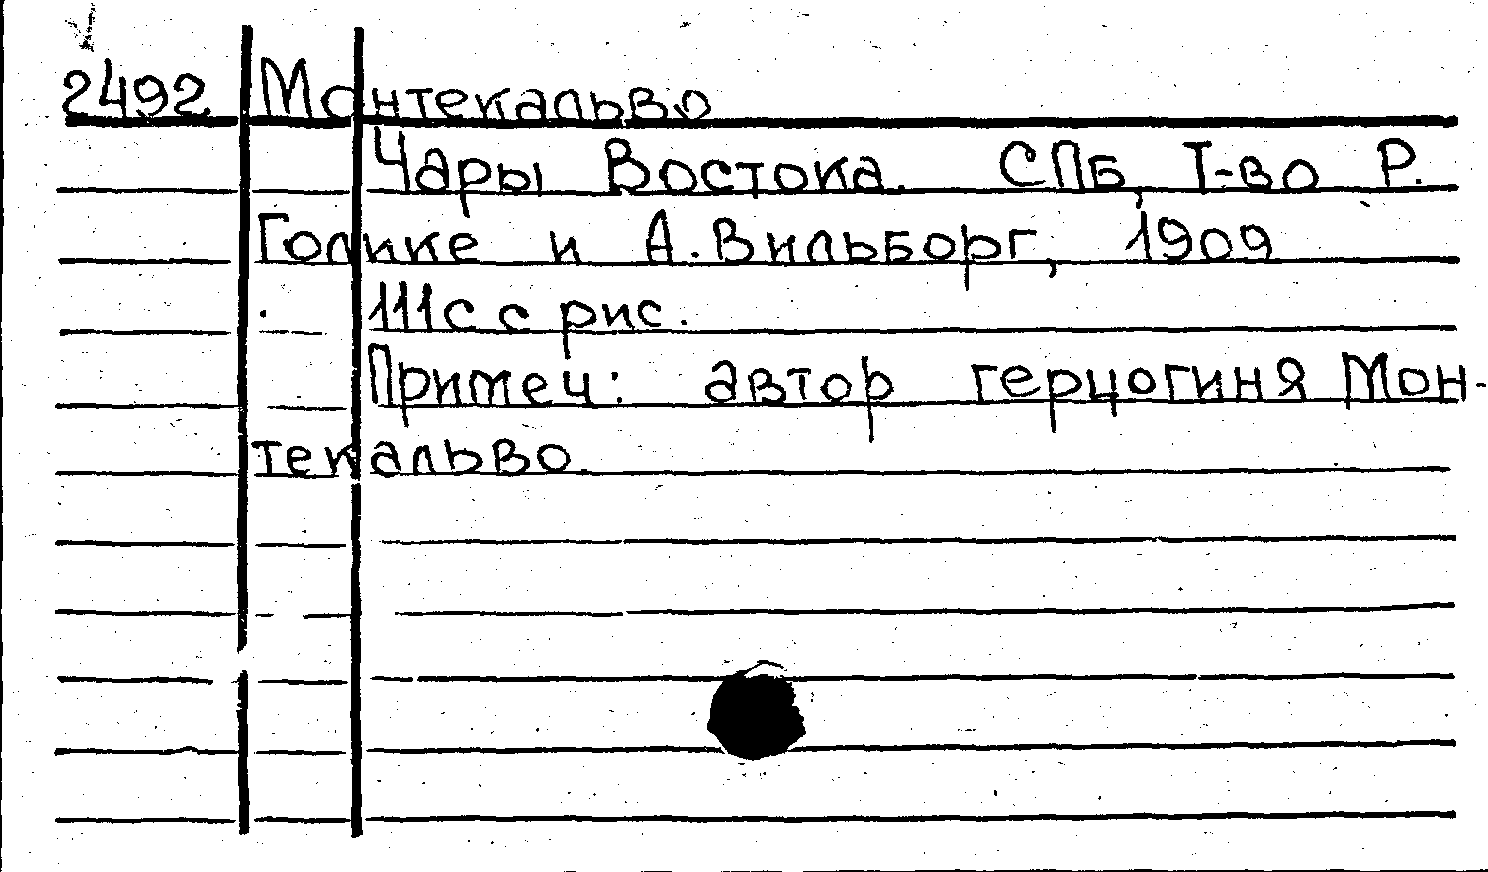 2492 Монтекальво
Чары Востока. СПБ, Т-во Р.
Голике и А. Вильборг, 1909
111с с рис.
Примеч: автор герцогиня Мон-
текальво.